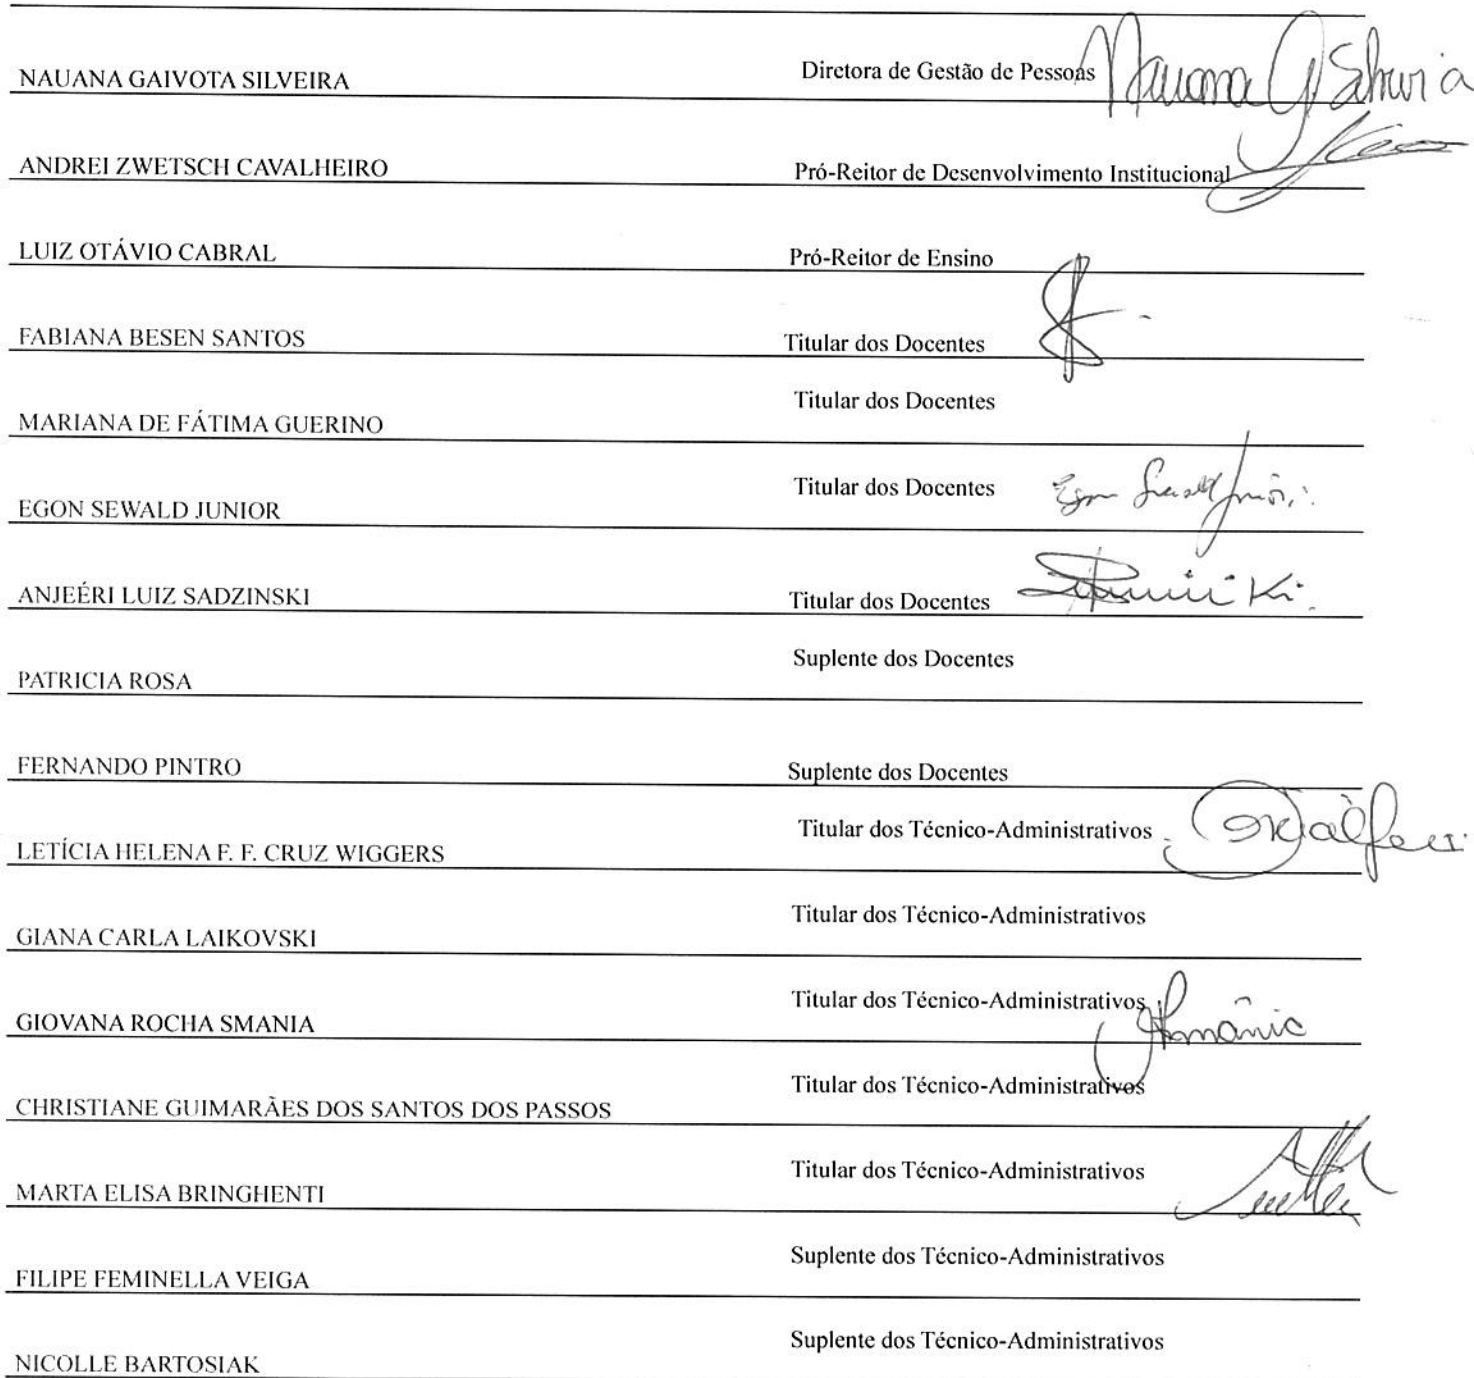 NAUANA GAIVOTA SILVEIRA Diretora de Gestão de Pessoas Nauana G Silveira
ANDREI ZWETSCH CAVALHEIRO Pró-Reitor de Desenvolvimento Institucional
LUIZ OTÁVIO CABRAL Pró-Reitor de Ensino
FABIANA BESEN SANTOS Titular dos Docentes
MARIANA DE FÁTIMA GUERINO Titular dos Docentes
EGON SEWALD JUNIOR Titular dos Docentes Egon Sewald Junior
ANJEÉRI LUIZ SADZINSKI Titular dos Docentes
PATRICIA ROSA Suplente dos Docentes
FERNANDO PINTRO Suplente dos Docentes
LETÍCIA HELENA F. F. CRUZ WIGGERS Titular dos Técnico-Administrativos
GIANA CARLA LAIKOVSKI Titular dos Técnico-Administrativos
GIOVANA ROCHA SMANIA Titular dos Técnico-Administrativos
CHRISTIANE GUIMARÃES DOS SANTOS DOS PASSOS Titular dos Técnico-Administrativos
MARTA ELISA BRINGHENTI Titular dos Técnico-Administrativos
FILIPE FEMINELLA VEIGA Suplente dos Técnico-Administrativos
NICOLLE BARTOSIAK Suplente dos Técnico-Administrativos